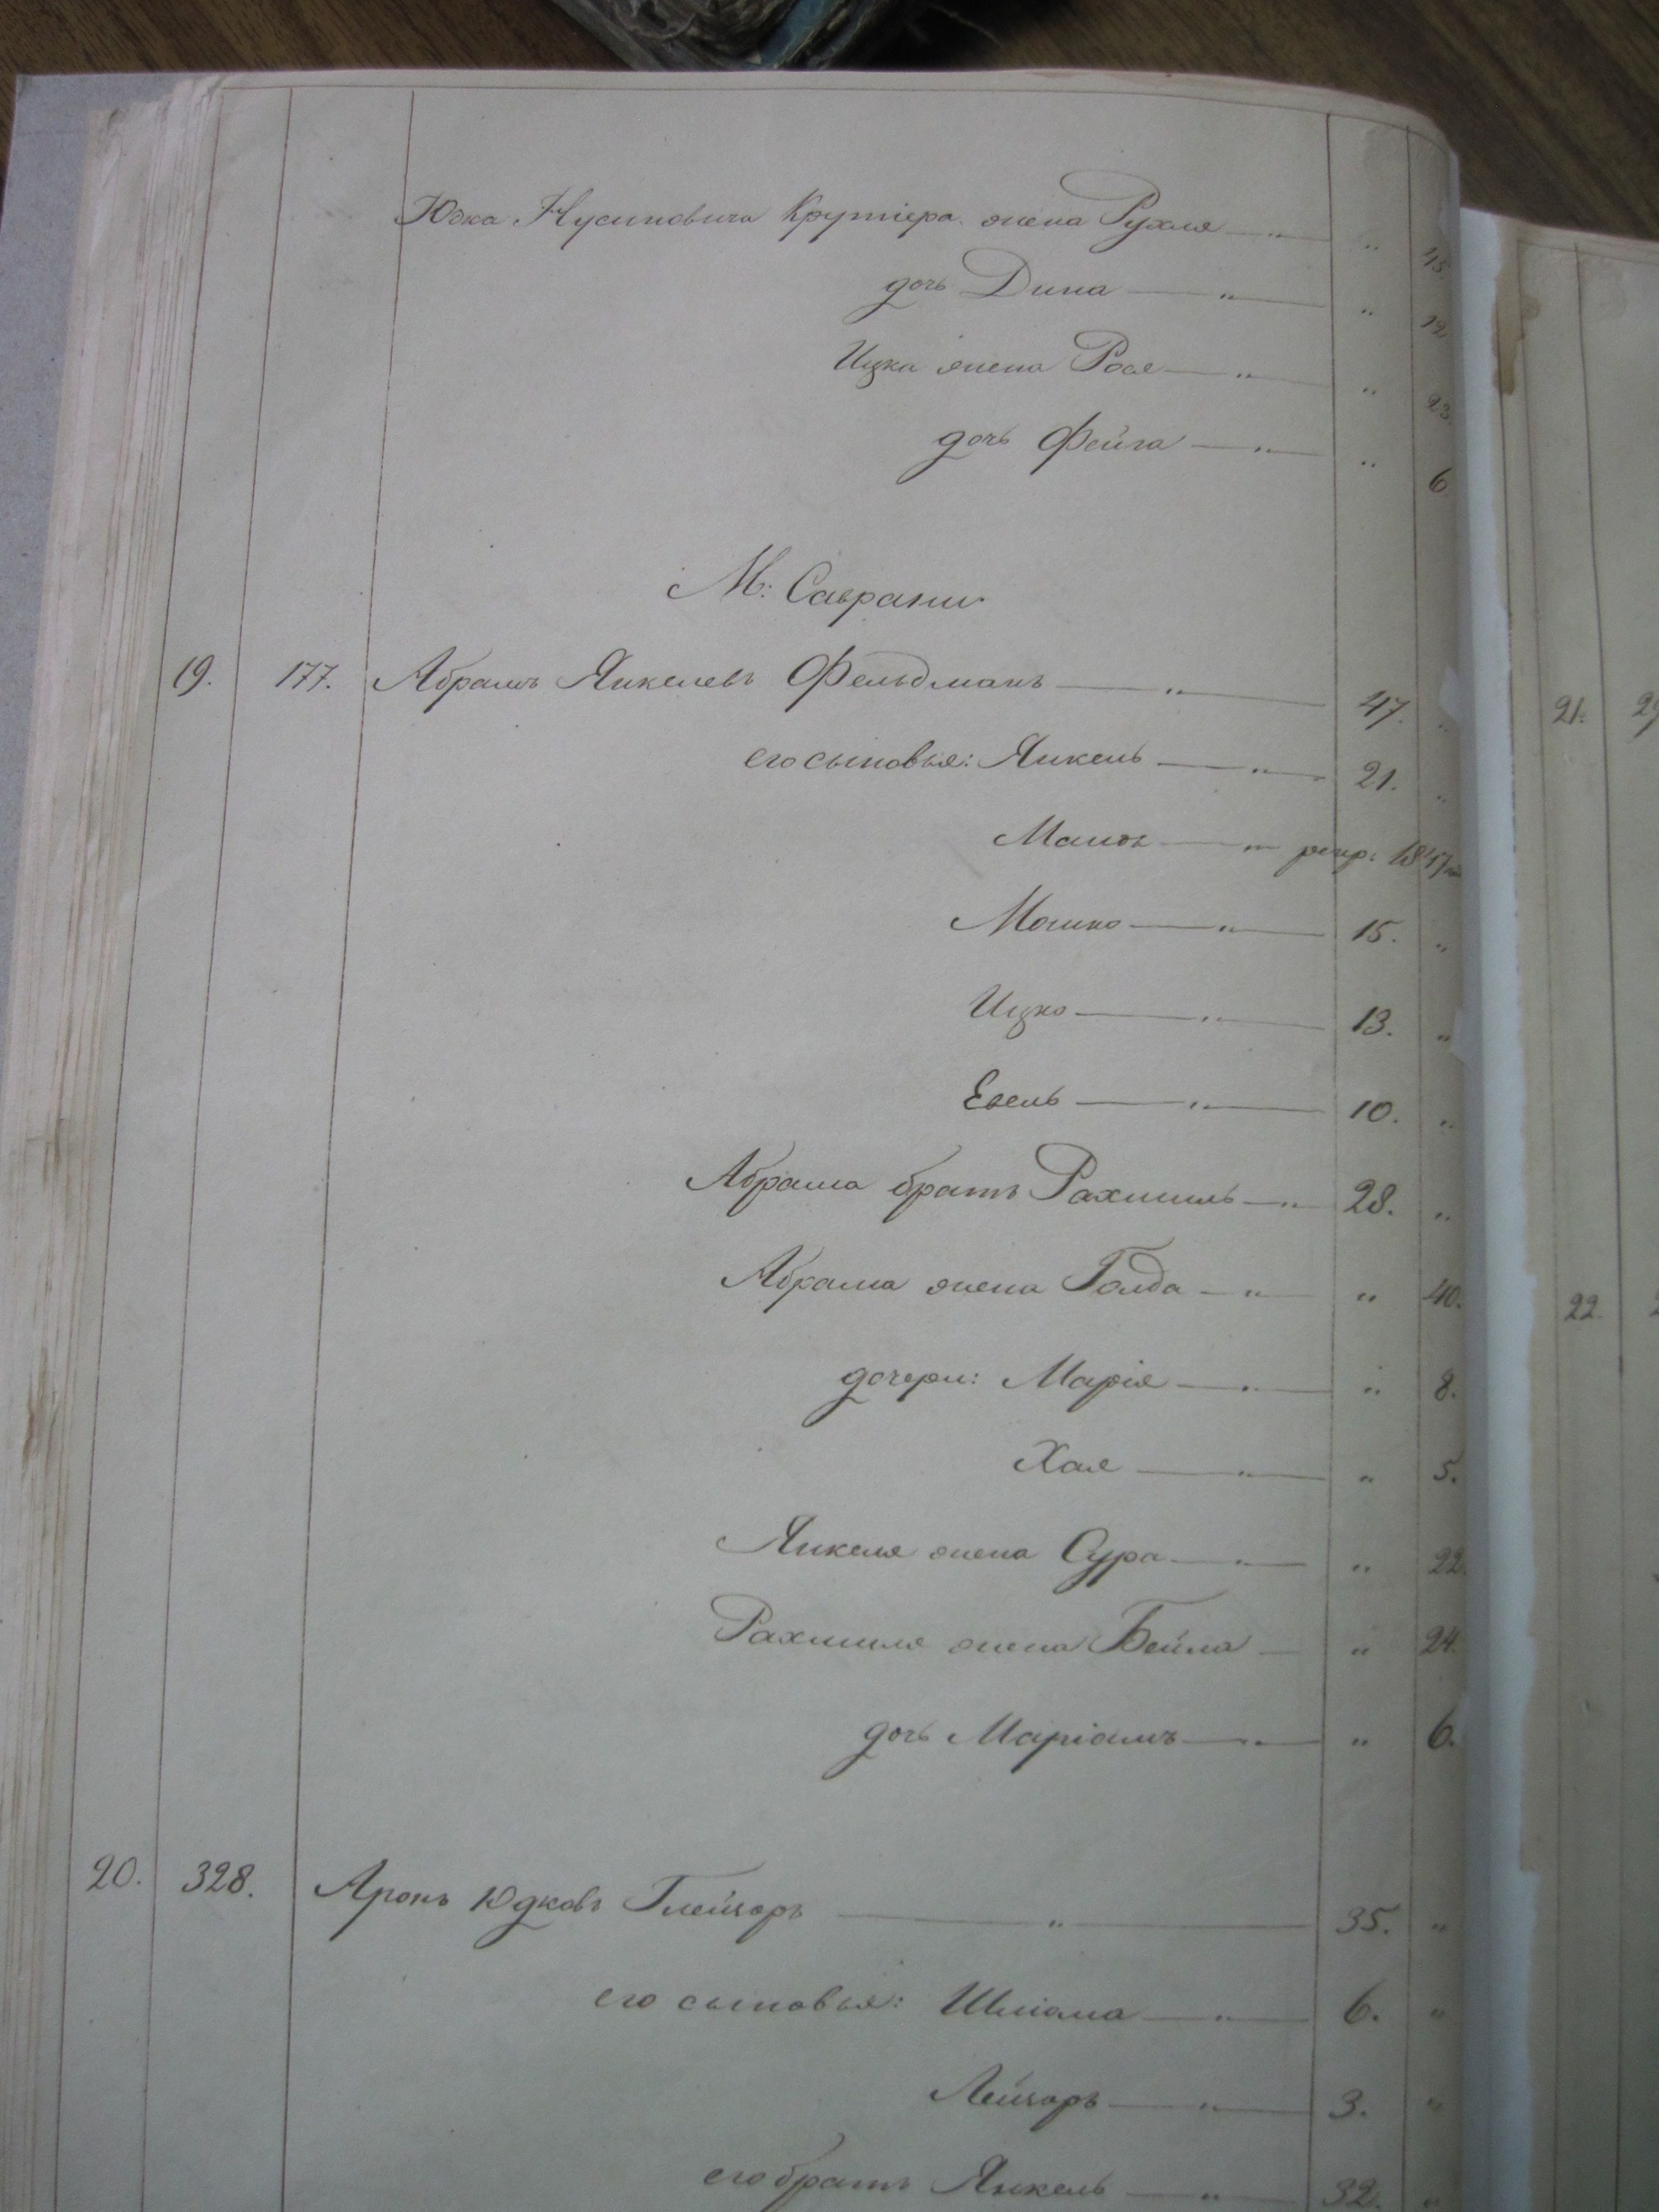 Юдка Нусиновича Крутіера жена Рухля — " — " 45
дочь Дина — " — " 12
Ицка жена Рося — " — " 23
дочь Фейга — " — " 6
М: Саврани
19. 177. Абрамъ Янкелевъ Фельдманъ — " — 47. "
его сыновья: Янкель — " — 21. "
— " — рекр: 1847
Мошко — " — 15. "
Ицко — " — 13. "
Евель — " — 10. "
Абрама братъ Рахмиль — " 28. "
Абрама жена Голда — " — " 40.
дочери: Марія — " — " 8.
Хая — " — " 5.
Янкеля жена Сура — " — " 22
Рахмиля жена Бейла — " 24.
дочь Маріамъ — " — " 6.
20. 328. Аронъ Юдковъ Глейзоръ — " — 35. "
его сыновья: Шліома — " — 6. "
Лейзоръ — " — 3. "
его братъ Янкель — " — 32. "
21.
22.